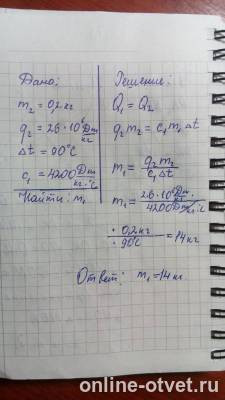 Дано:
m₂ = 0,2 кг
q₂ = 26 · 10⁶ Дж/кг
Δt = 90°C
c₁ = 4200 Дж/кг·°C
Найти: m₁
Решение:
Q₁ = Q₂
q₂m₂ = c₁m₁Δt
m₁ = q₂m₂/c₁Δt
m₁ = 26 · 10⁶ Дж/кг / 4200 Дж/кг·°C
· 0,2 кг / · 90°C = 14 кг
Ответ: m₁ = 14 кг.
online-otvet.ru